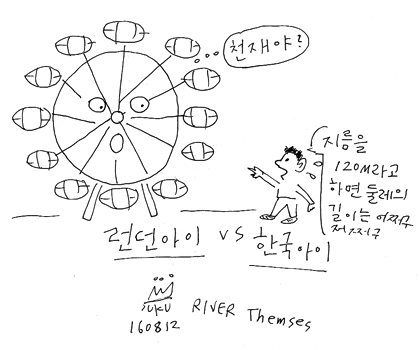 천재야?
지름을
120M라고
하면 둘레의
길이는 어쩌구
저쩌구
런던아이 vs 한국아이
suku
160812
RIVER Themses